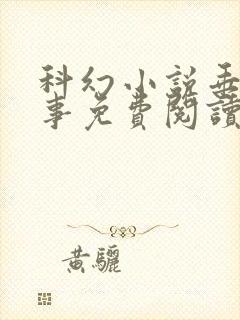 科幻小説垂
事免費閱讀
黃驪